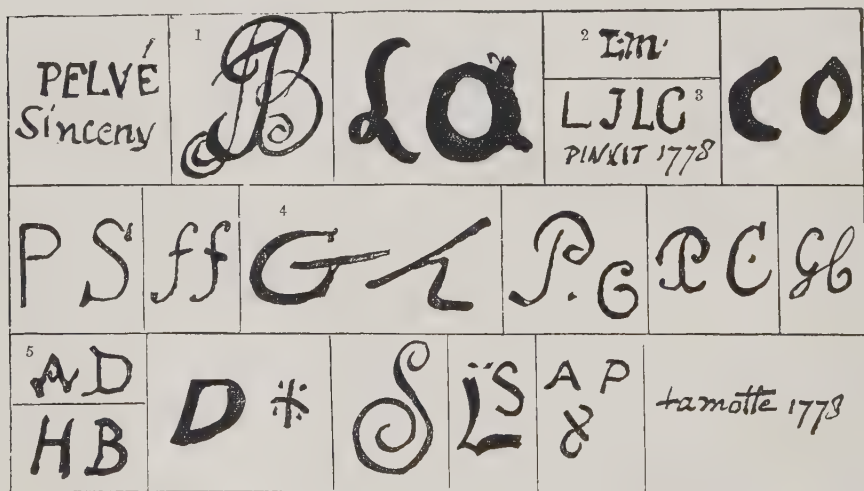 PELVÉ
Sinceny
1
JB
La
2 L.m.
LJLC 3
PINXIT 1778
C O
P S
ff
4
G
P. G
P C
Gb
5
AD
HB
D *
S
L̈S
A P
lamotte 1778